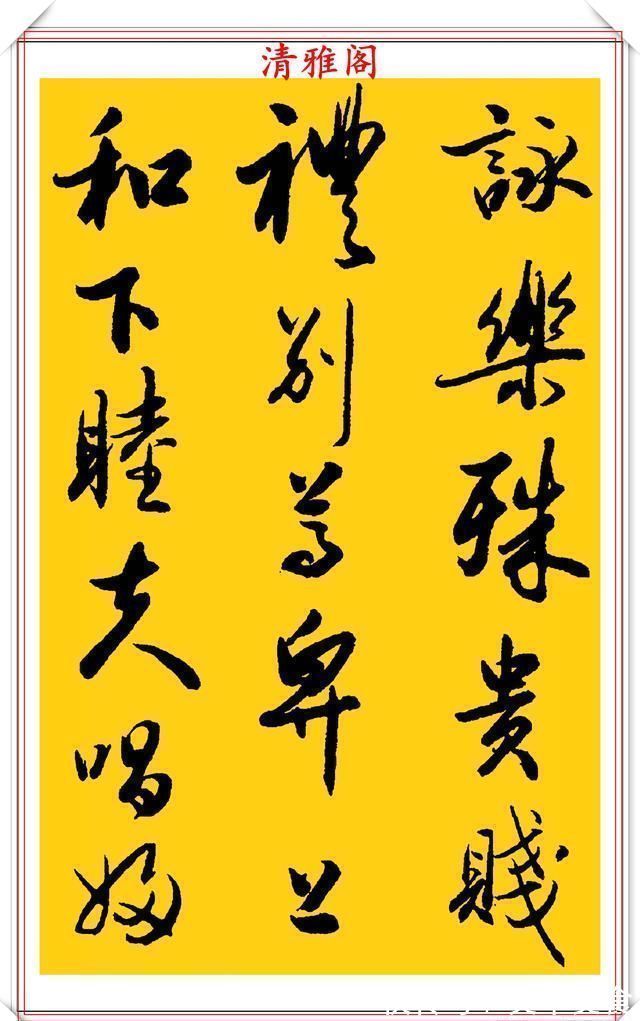 清雅阁
詠樂殊貴賤
禮別尊卑上
和下睦夫唱婦